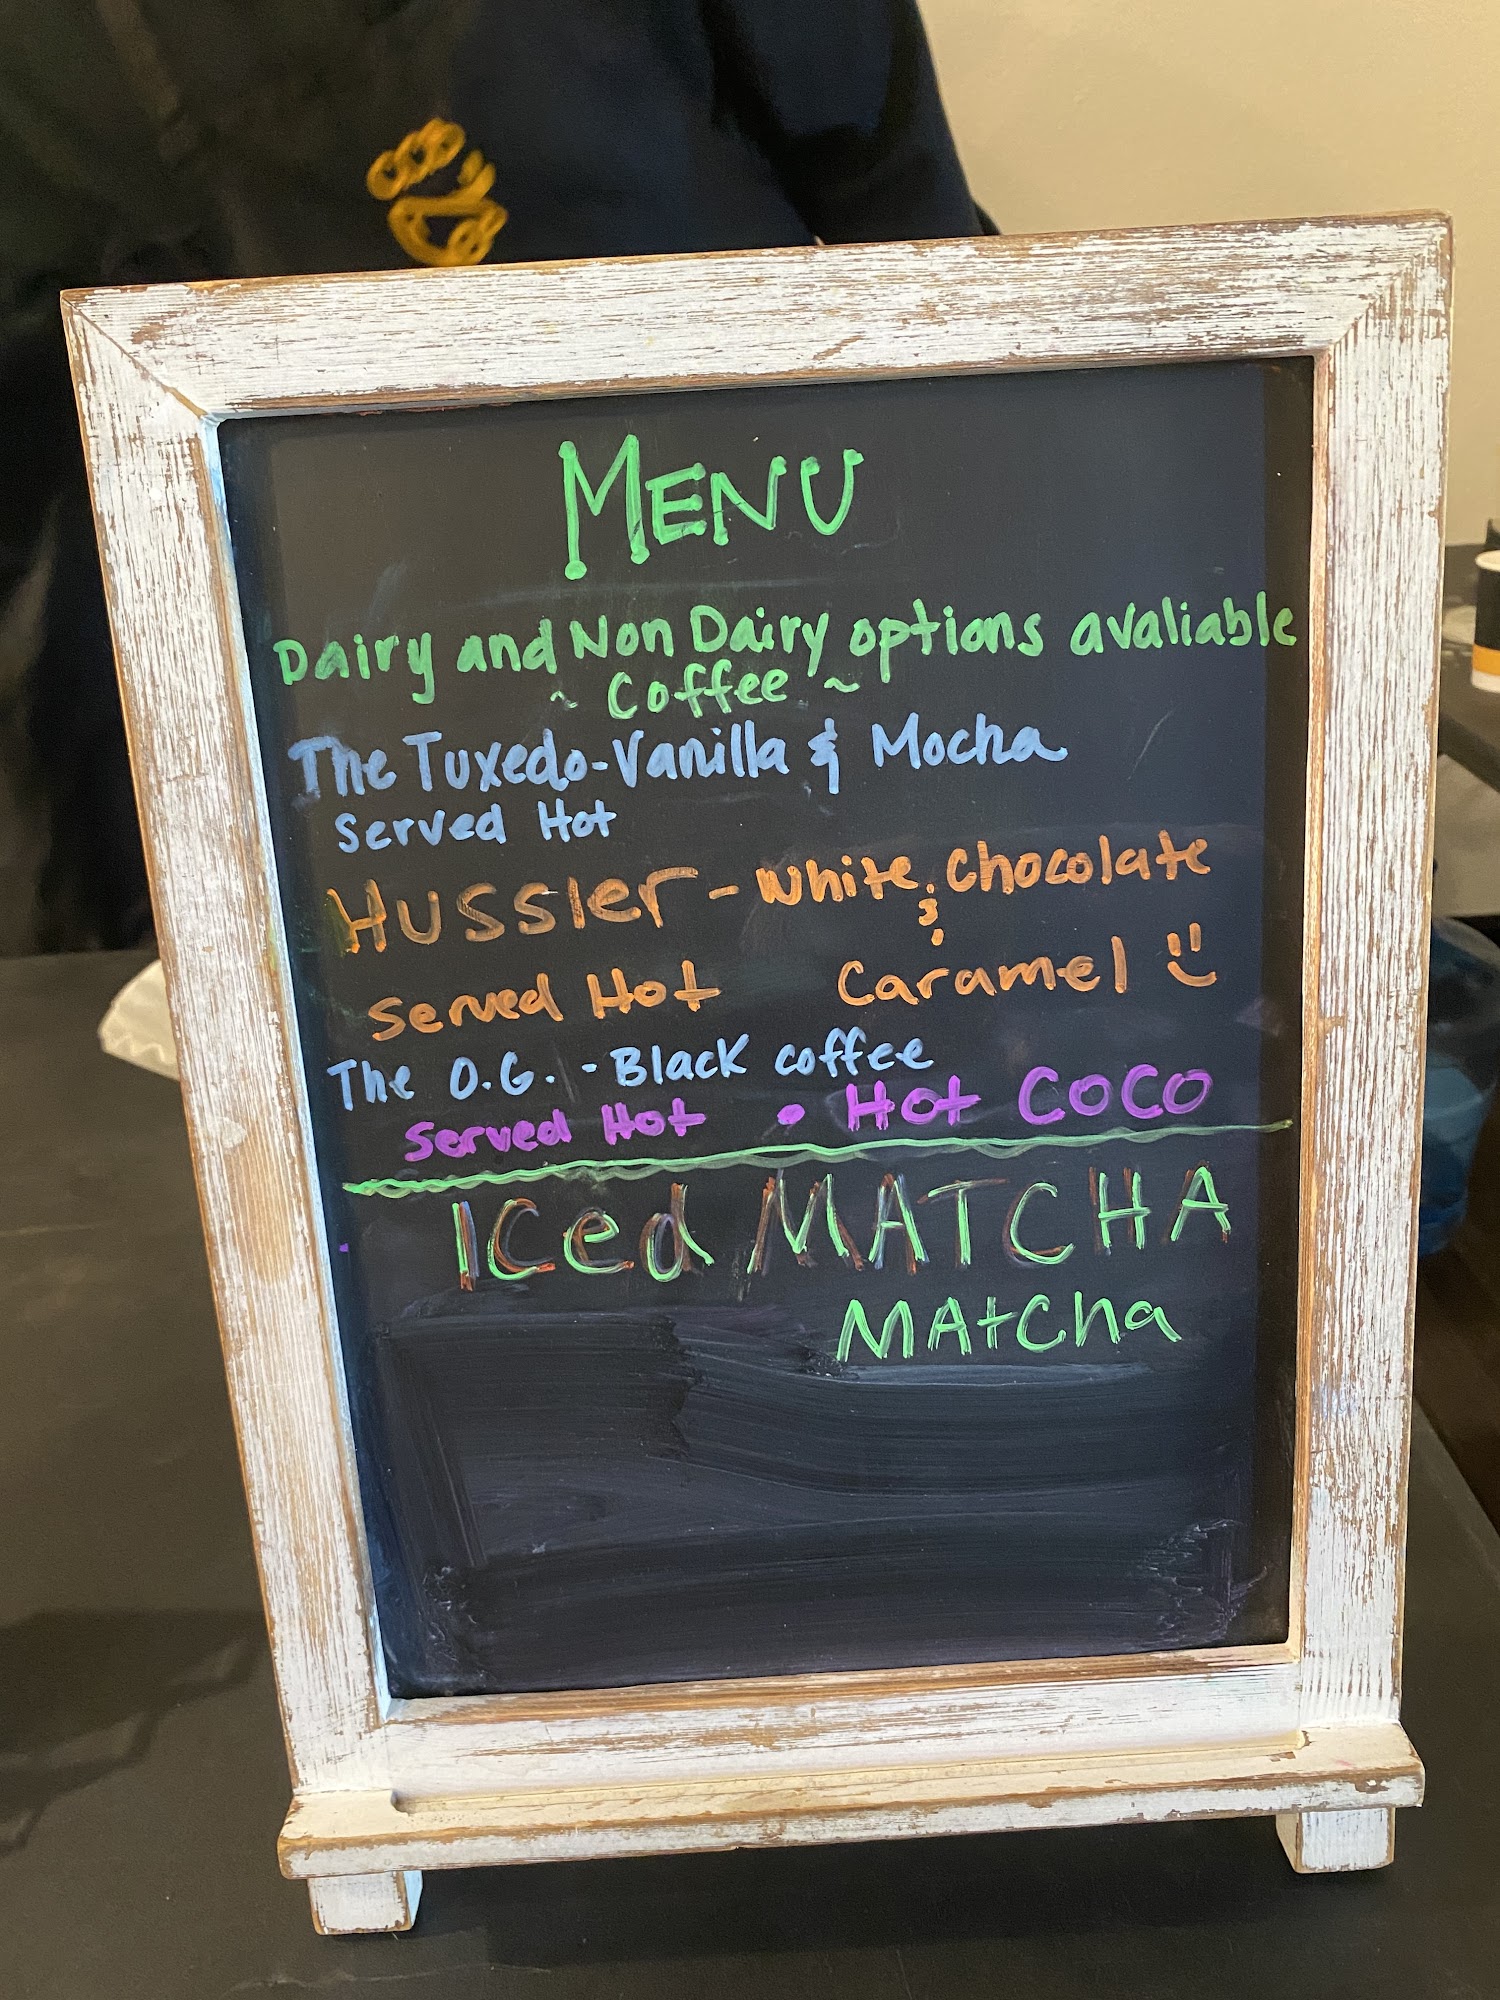 MENU
Dairy and Non Dairy options avaliable
~ Coffee ~
The Tuxedo-Vanilla & Mocha
Served Hot
Hussler - White Chocolate
&
Served Hot Caramel
The O.G. - Black coffee
Served Hot • Hot CoCo
Iced MATCHA
MAtCha